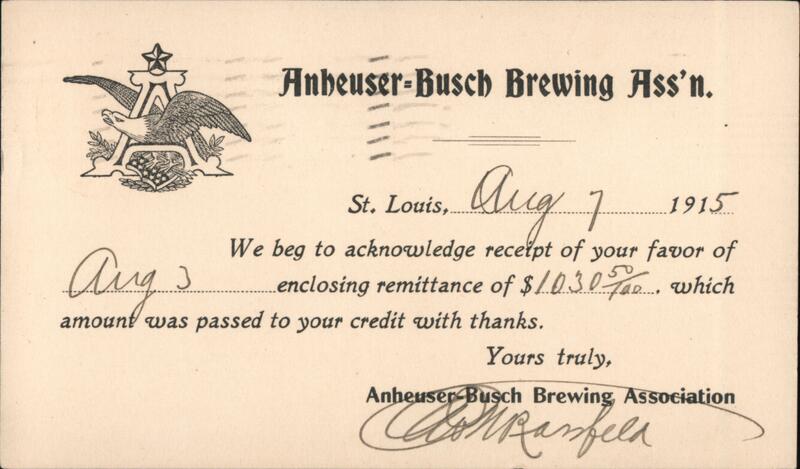 Anheuser-Busch Brewing Ass'n.
St. Louis, Aug 7 1915
We beg to acknowledge receipt of your favor of
Aug 3 enclosing remittance of $1030 50/100. which
amount was passed to your credit with thanks.
Yours truly,
Anheuser-Busch Brewing Association